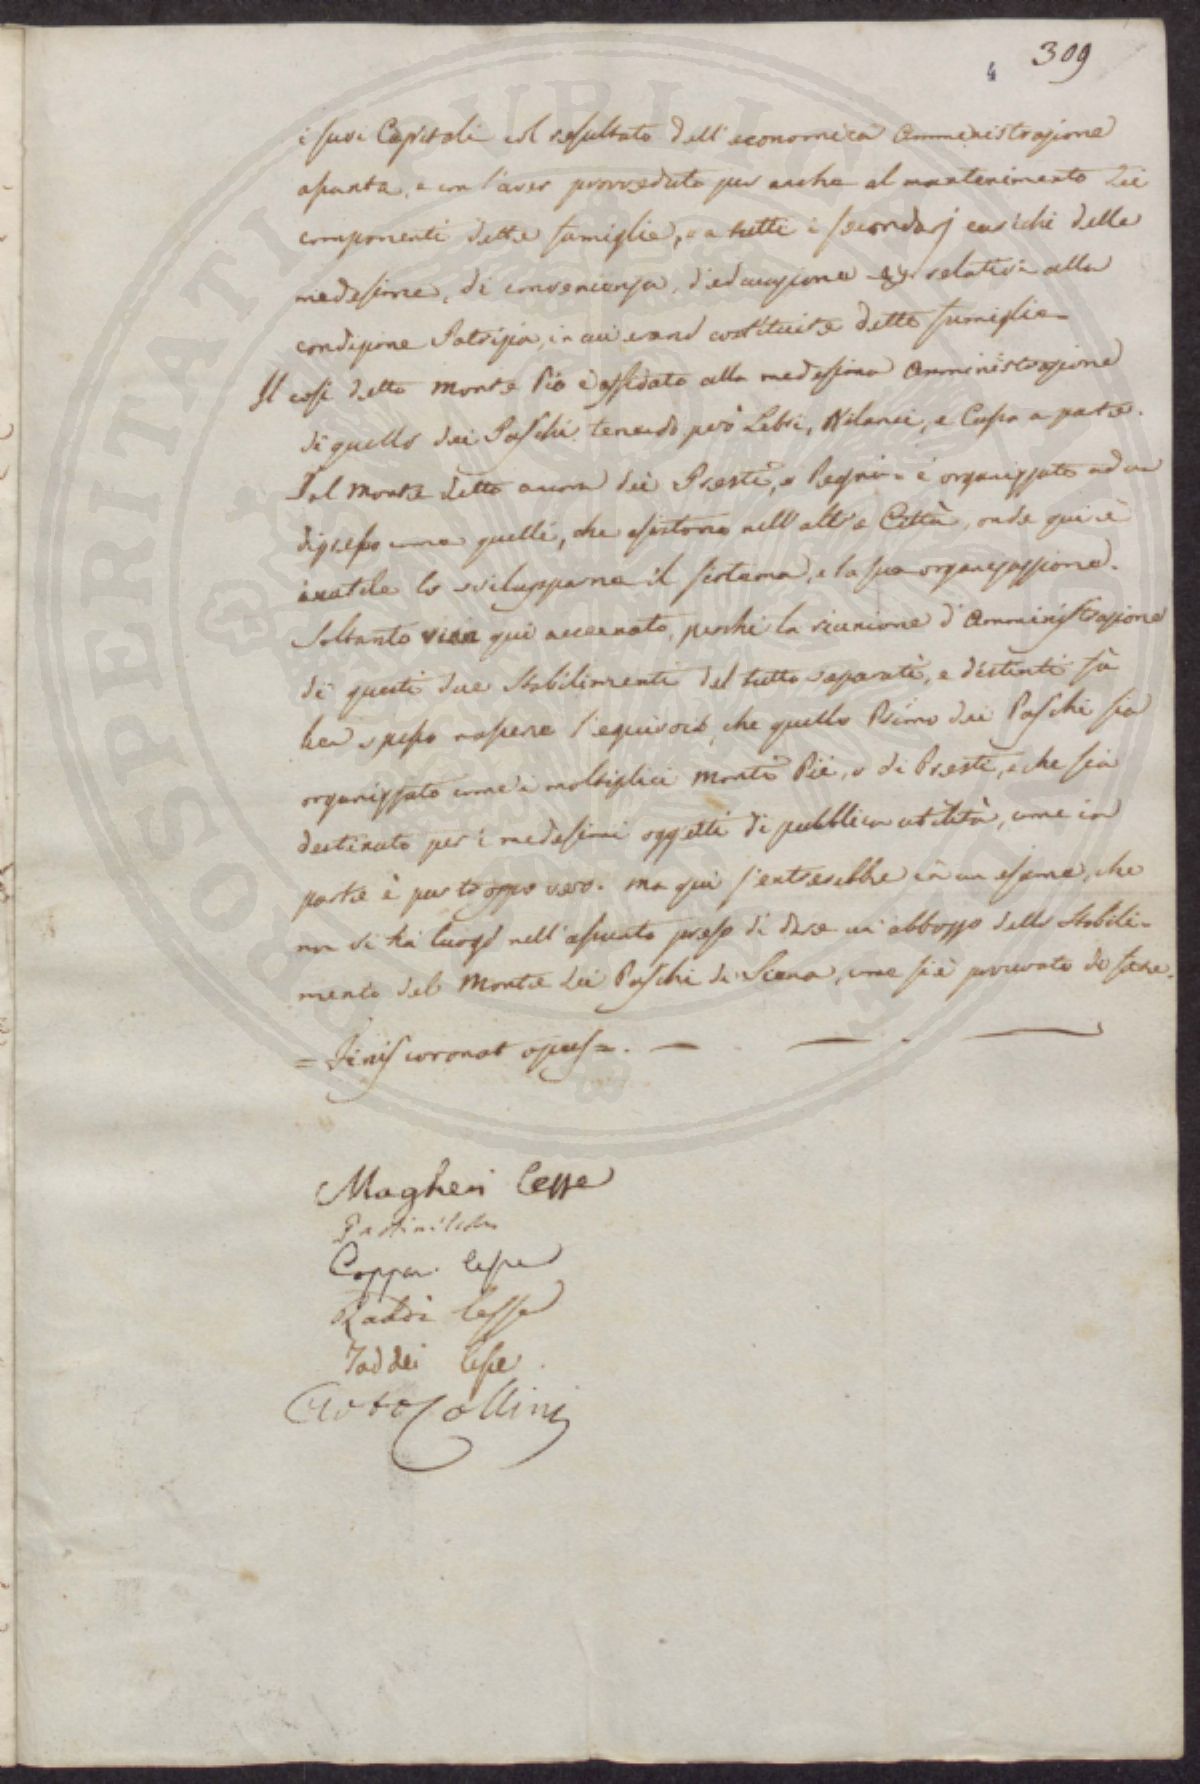 309
4
i suoi Capitali col resultato dell'economica Amministrazione
assunta, e con l'aver provveduto pur anche al mantenimento dei
componenti dette famiglie, e a tutti i secondarj carichi delle
medesime, di convenienza, d'educazione relativi alla
condizione Patrizia, in cui erano costituite dette famiglie
Il così detto Monte Pio è affidato alla medesima Amministrazione
di quello dei Paschi tenendo però Libri, Bilanci, e Cassa a parte.
Tal Monte detto ancora dei Presti, o Pegni è organizzato ad un
dipresso come quelli, che esistono nell'altre Città, onde qui è
inutile lo svilupparne il sistema, e la sua organizzazione.
Soltanto vien qui accennato, perchè la riunione d'Amministrazione
di questi due Stabilimenti del tutto separati, e distinti fà
ben spesso nascere l'equivoco, che quello Primo dei Paschi sia
organizzato come i moltiplici Monti Pii, o di Presti, e che sia
destinato per i medesimi oggetti di pubblica utilità, come in
parte è pur troppo vero. Ma qui s'entrerebbe in un esame, che
non si hà luogo nell'assunto preso di dare un'abbozzo dello Stabili-
mento del Monte dei Paschi di Siena, come si è procurato di fare.
= Finis coronat opus =.
Magheri Cesse
Coppi lesse
Raddi lesse
Taddei lesse
Collini
PROSPERITATI PUBLICAE